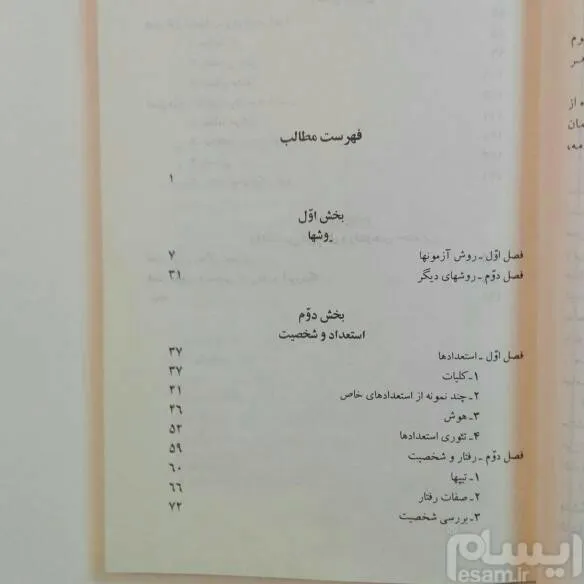 فهرست مطالب
۱
بخش اوّل
روشها
فصل اوّل ـ روش آزمونها ۷
فصل دوّم ـ روشهای دیگر ۳۱
بخش دوّم
استعداد و شخصیت
فصل اوّل ـ استعدادها ۳۷
۱ـ کلیات ۳۷
۲ـ چند نمونه از استعدادهای خاص ۴۱
۳ـ هوش ۴۶
۴ـ تئوری استعدادها ۵۲
فصل دوّم ـ رفتار و شخصیت ۵۹
۱ـ تیپها ۶۰
۲ـ صفات رفتار ۶۶
۳ـ بررسی شخصیت ۷۲
ایسام
esam.ir